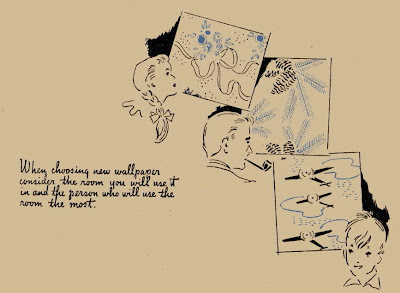 When choosing new wallpaper
consider the room you will use it
in and the person who will use the
room the most.